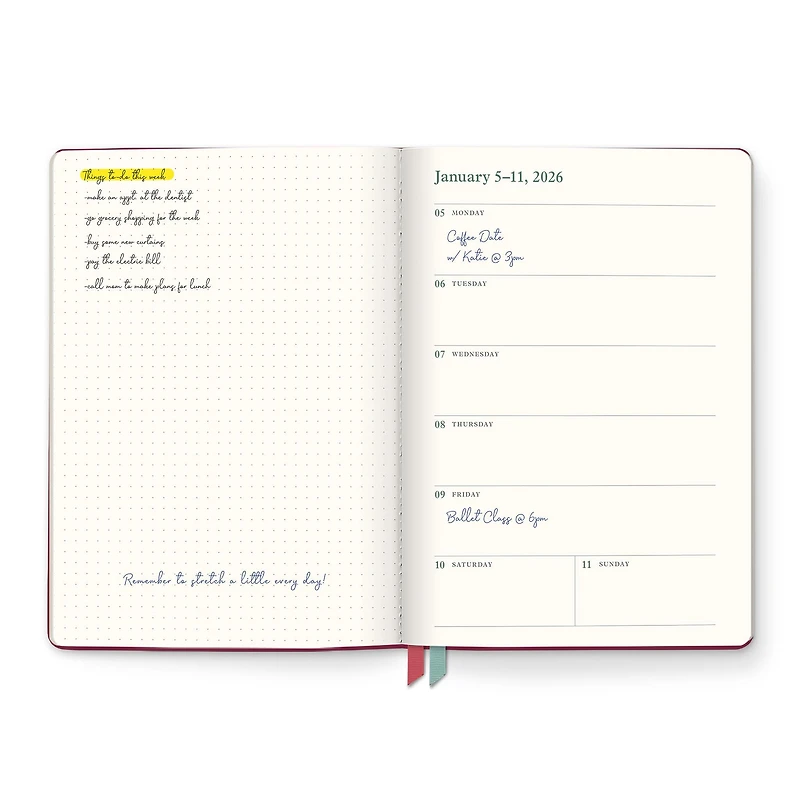 Things to-do this week
-make an appt. at the dentist
-go grocery shopping for the week
-buy some new curtains
-pay the electric bill
-call mom to make plans for lunch
Remember to stretch a little every day!
January 5–11, 2026
05 MONDAY
Coffee Date
w/ Katie @ 3pm
06 TUESDAY
07 WEDNESDAY
08 THURSDAY
09 FRIDAY
Ballet Class @ 6pm
10 SATURDAY
11 SUNDAY